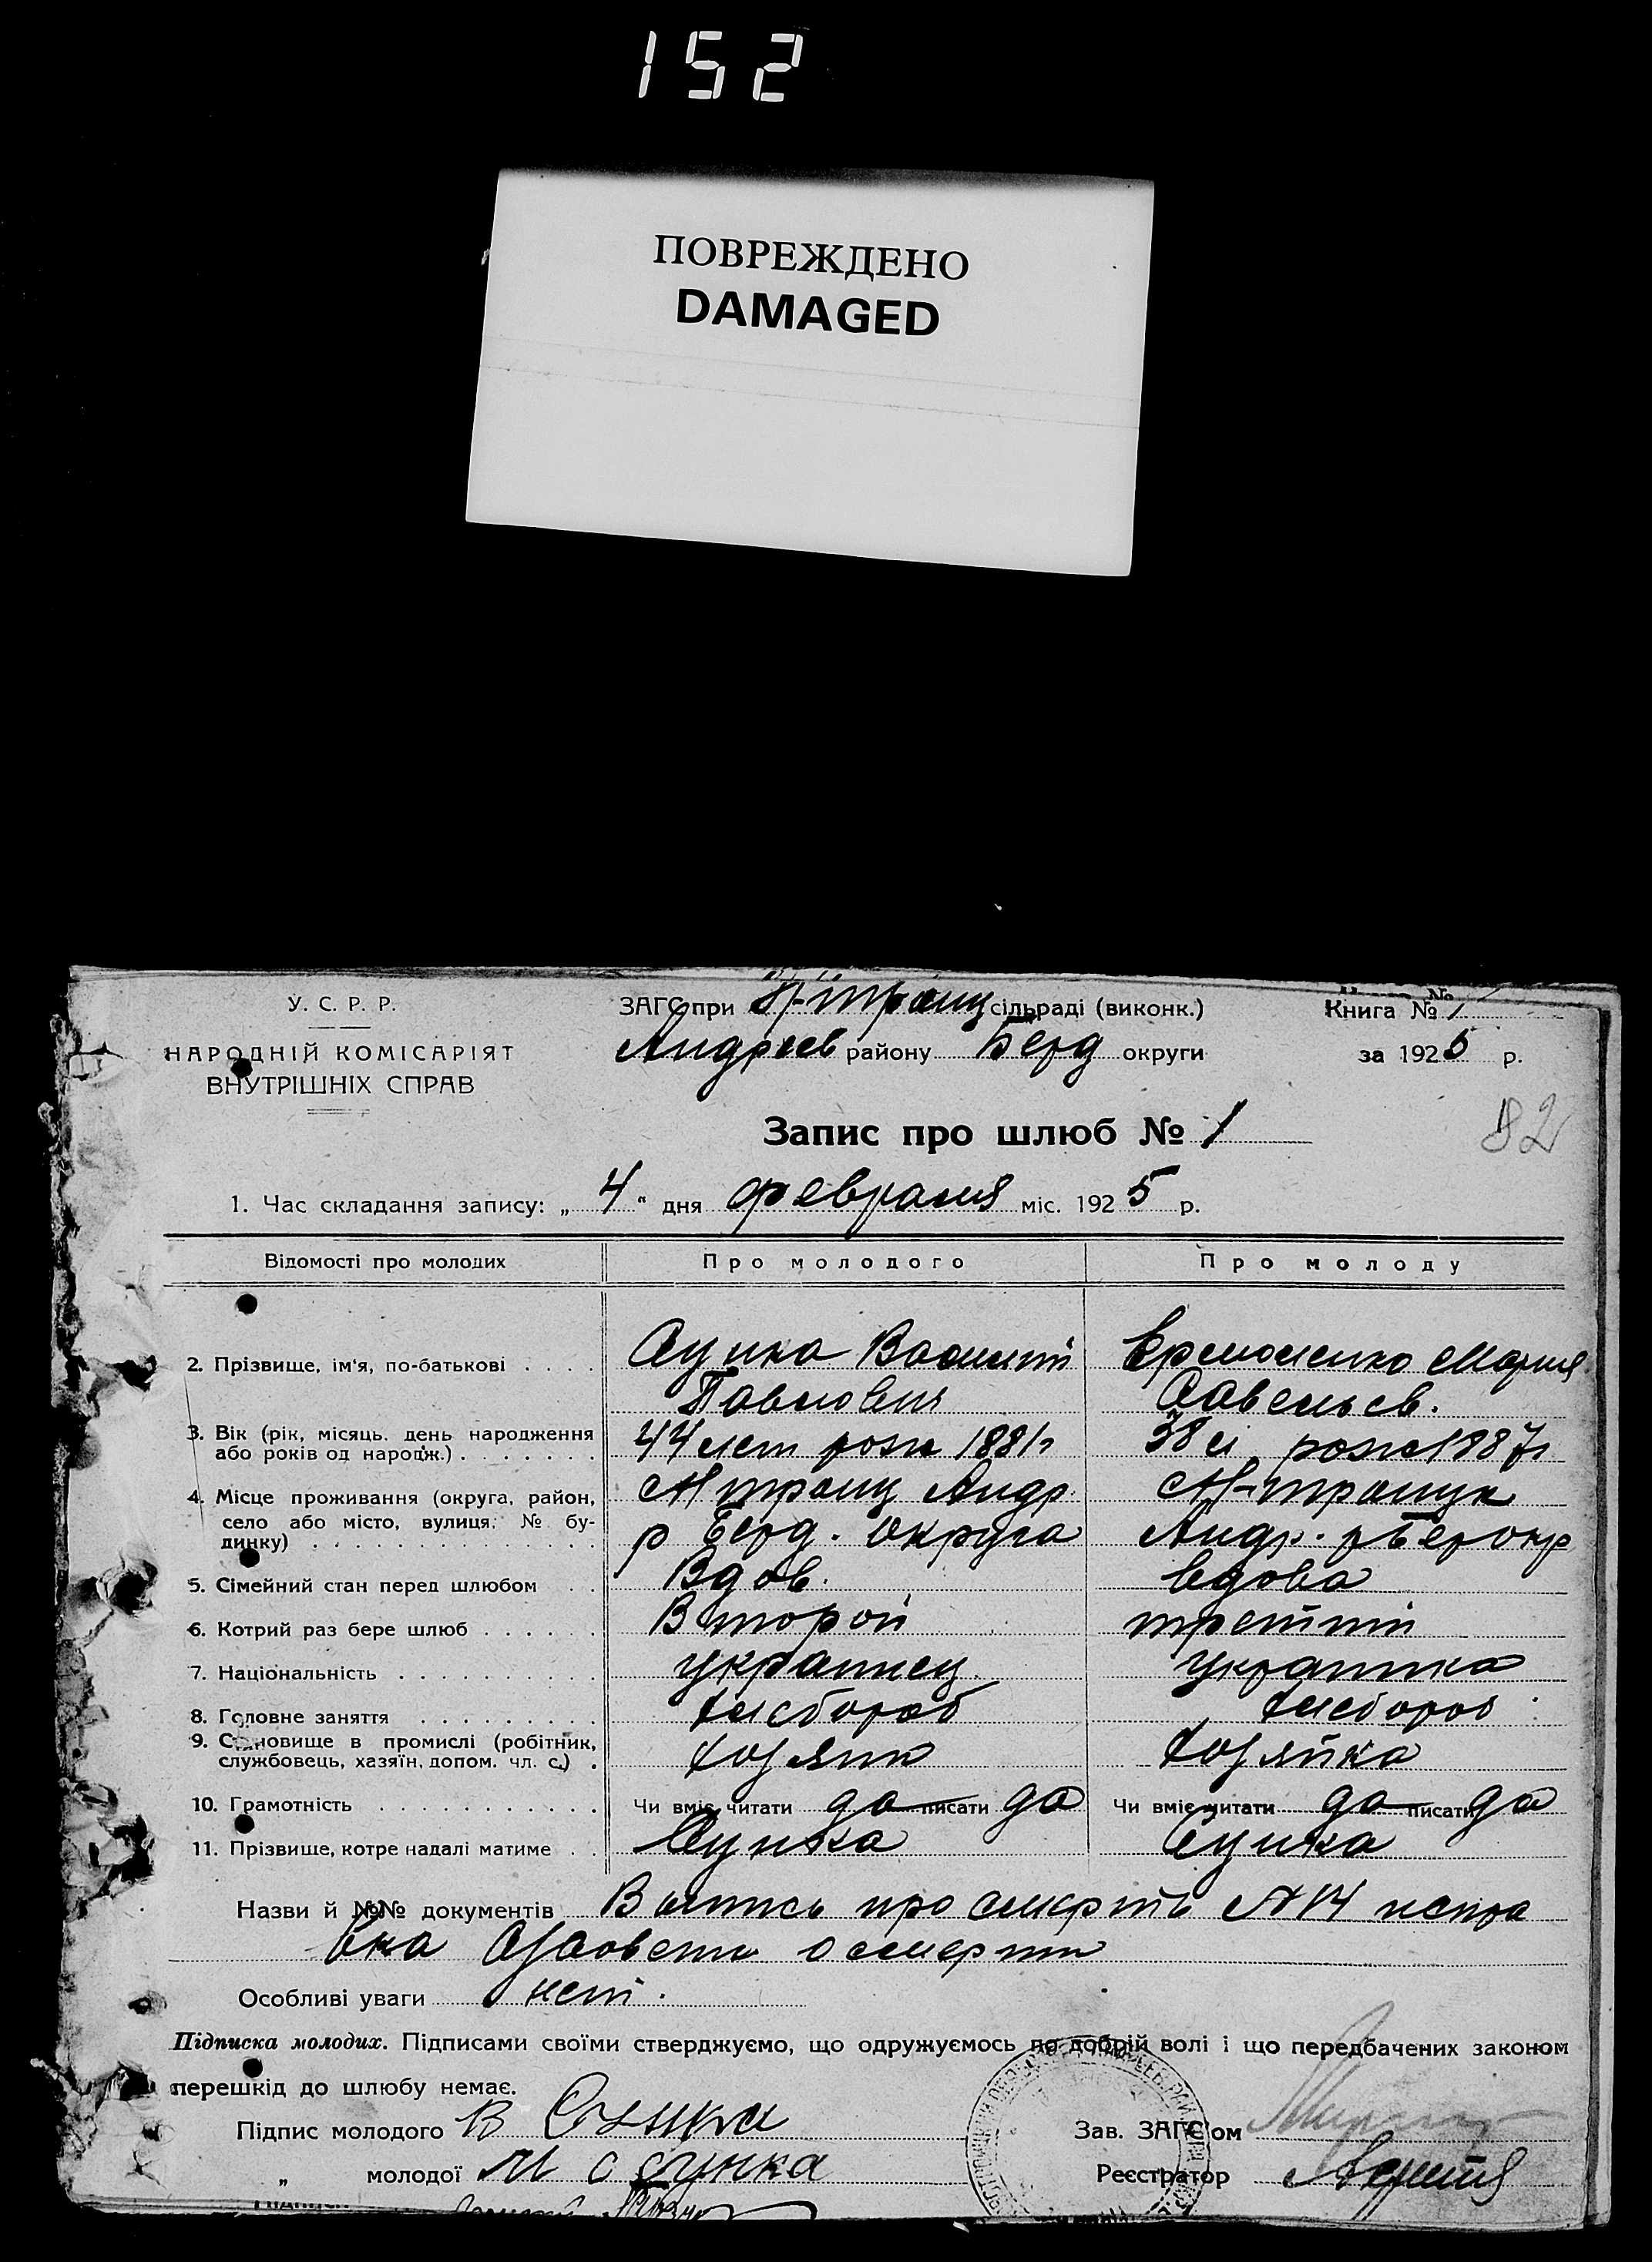 152
ПОВРЕЖДЕНО
DAMAGED
У. С. Р. Р.
НАРОДНІЙ КОМІСАРІЯТ
ВНУТРІШНІХ СПРАВ
ЗАГС при Н-троиц сільраді (виконк.)
Андреев району Берд округи
Книга № 1
за 1925 р.
82
Запис про шлюб № 1
1. Час складання запису: „4“ дня февраля міс. 1925 р.
Відомості про молодих Про молодого Про молоду
2. Прізвище, ім'я, по-батькові . . . . Василий Мария
Савельев.
3. Вік (рік, місяць, день народження 44 лет рожд 1881г 38 л рожд 1887г
або років од народж.) . . . . . . .
4. Місце проживання (округа, район, Н троиц Андр. Н-троицк
село або місто, вулиця, № бу- р Берд. округа Андр.
динку) . . . . . . . . . . . . . .
5. Сімейний стан перед шлюбом . . Вдов. вдова
6. Котрий раз бере шлюб . . . . . . Второй третий
7. Національність . . . . . . . . . . украинец украинка
8. Головне заняття . . . . . . . . . хлебороб хлебороб
9. Становище в промислі (робітник, хозяин хозяйка
службовець, хазяїн, допом. чл. с.) .
10. Грамотність . . . . . . . . . . . Чи вміє читати да писати да Чи вміє читати да писати да
11. Прізвище, котре надалі матиме . .
Назви й №№ документів Выпись про смерть №14
о смерти
Особливі уваги нет.
Підписка молодих. Підписами своїми стверджуємо, що одружуємось по добрій волі і що передбачених законом
перешкід до шлюбу немає.
Підпис молодого В
Зав. ЗАГС'ом
„ молодої М
Реєстратор